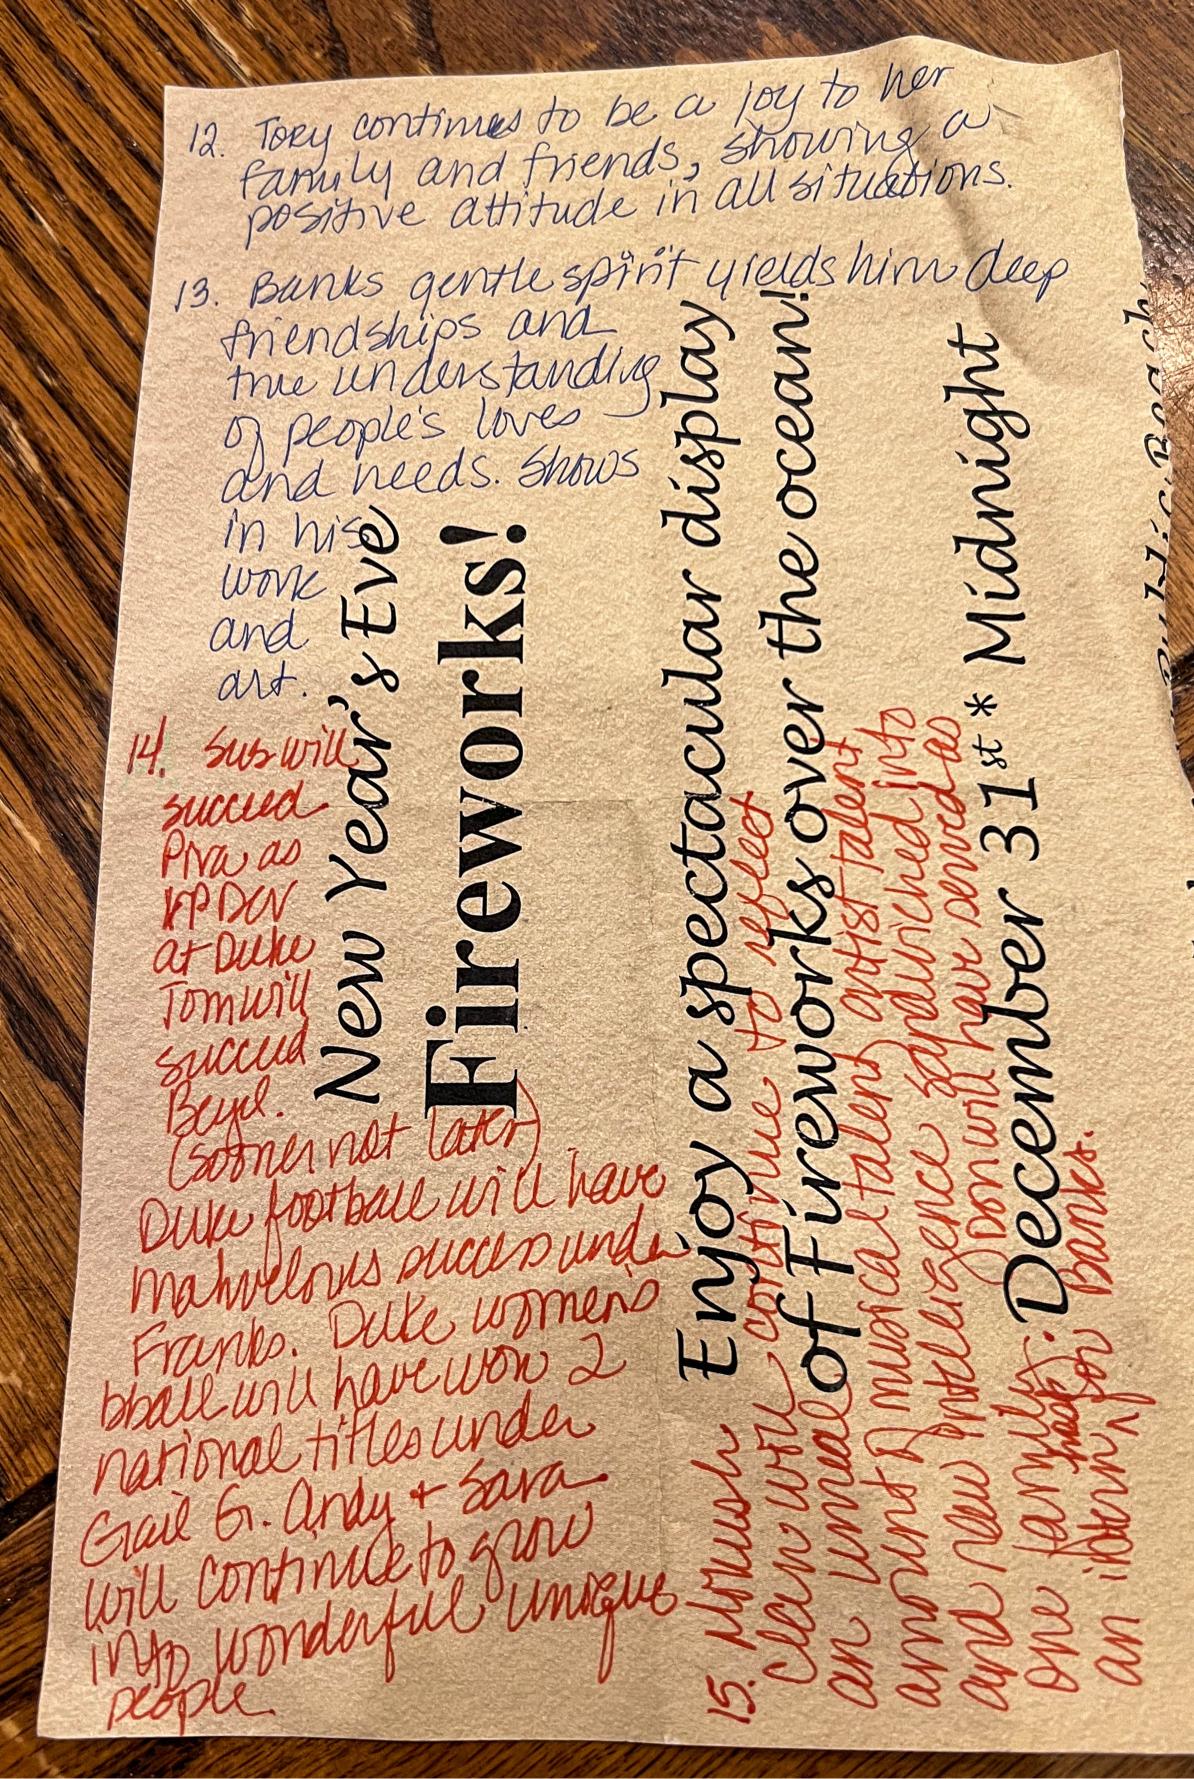 12. Tory continues to be a joy to her
family and friends, showing a
positive attitude in all situations.
13. Banks gentle spirit yields him deep
friendships and
true understanding
of people's loves
and needs. Shows
in his
work
and
art.
14. Sus will
succeed
Piva as
VP Dev
at Duke
Tom will
succeed
Beyel.
(sooner not later)
Duke football will have
marvelous success under
Franks. Duke women's
bball will have won 2
national titles under
Gail G. Andy + Sara
will continue to grow
into wonderful unique
people.
New Year's Eve
Fireworks!
Enjoy a spectacular display
of Fireworks over the ocean!
December 31st * Midnight
15. Mowush
clan will continue to reflect
an unreal
amount of musical talent, artist talent
and new intelligence sandwiched into
one family. Don will have served as
an intern for Banks.
Public Beach